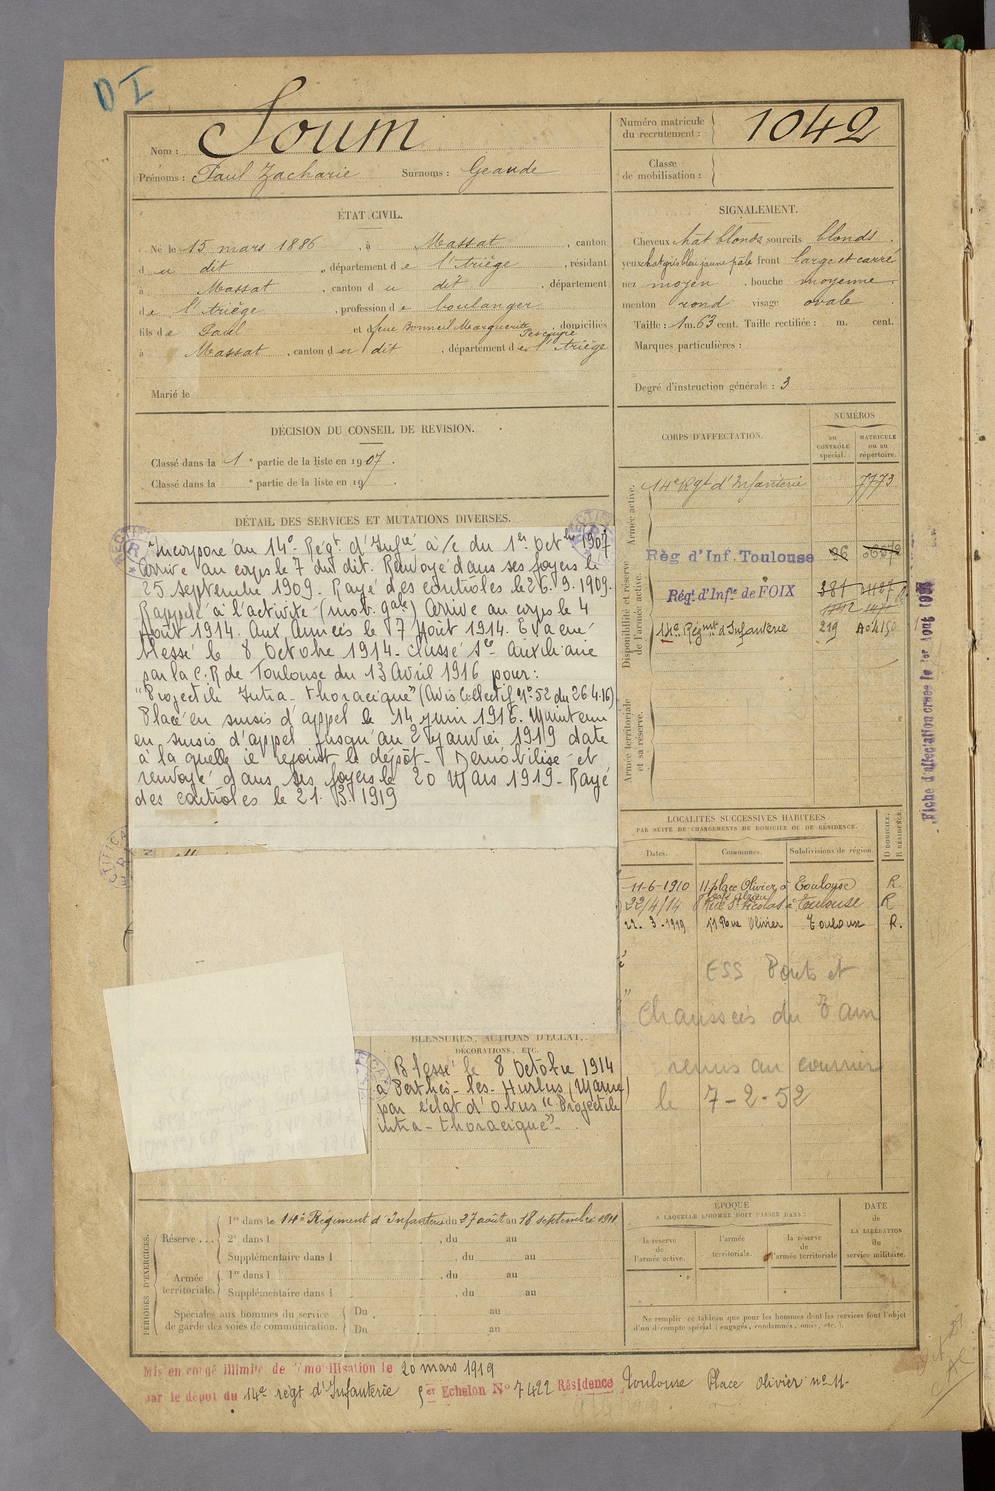 D I
Nom : Soum
Prénoms : Paul Zacharie Surnoms : Geaude
Numéro matricule du recrutement : 1042
Classe de mobilisation :
ÉTAT CIVIL.
Né le 15 mars 1886, à Massat, canton
du dit, département de l'Ariège, résidant
à Massat, canton du dit, département
de l'Ariège, profession de boulanger
fils de Paul et de feue Bonneil Marguerite domiciliés
à Massat, canton du dit, département de l'Ariège
Marié le
SIGNALEMENT.
Cheveux chat blonds sourcils blonds.
yeux front large et carré
nez moyen, bouche moyenne.
menton rond visage ovale
Taille : 1m. 63 cent. Taille rectifiée : m. cent.
Marques particulières :
Degré d'instruction générale : 3
DÉCISION DU CONSEIL DE REVISION.
Classé dans la 1e partie de la liste en 1907.
Classé dans la e partie de la liste en 19 .
CORPS D'AFFECTATION.
NUMÉROS
au CONTRÔLE spécial.
MATRICULE ou au répertoire.
Armée active.
14e Rgt d'Infanterie 7773
Disponibilité et réserve de l'armée active.
Règ d'Inf. Toulouse
Régt d'Infie de FOIX
14e Régmt d'Infanterie 219
Armée territoriale et sa réserve.
Fiche d'affectation
DÉTAIL DES SERVICES ET MUTATIONS DIVERSES.
Incorporé au 14e Régt d'Infie à/c du 1er Octbre 1907
Arrivé au corps le 7 dudit. Renvoyé dans ses foyers le
25 septembre 1909. Rayé des contrôles le 26.9.1909.
Rappelé à l'activité (mob. gale) Arrivé au corps le 4
Août 1914. Aux Armées le 17 Août 1914. Evacué
blessé le 8 Octobre 1914. Classé Sce Auxiliaire
par la C.R de Toulouse du 13 Avril 1916 pour :
"Projectile Intra-thoracique" (Avis Collectif No 52 du 26 4.16).
Placé en sursis d'appel le 14 juin 1916. Maintenu
en sursis d'appel jusqu'au 2 janvier 1919 date
à la quelle il rejoint le dépôt. Démobilisé et
renvoyé dans ses foyers le 20 Mars 1919. Rayé
des contrôles le 21. 3. 1919
LOCALITÉS SUCCESSIVES HABITÉES
PAR SUITE DE CHANGEMENTS DE DOMICILE OU DE RÉSIDENCE.
Dates. Communes. Subdivisions de région. D DOMICILE. R RÉSIDENCE.
11-6-1910 11 place Olivier à Toulouse R.
22/4/14 Rue St Nicolas à Toulouse R
22. 3. 1919 11 Rue Olivier Toulouse R.
ESS Ponts et
Chaussées du Tarn
remis au courrier
le 7-2-52
BLESSURES, ACTIONS D'ÉCLAT,
DÉCORATIONS, ETC.
Blessé le 8 Octobre 1914
à Perthes-les-Hurlus (Marne)
par éclat d'obus "Projectile
intra-thoracique".
PÉRIODES D'EXERCICES.
Réserve... 1re dans le 14e Régiment d'Infanterie du 27 août au 18 septembre 1911
2e dans l , du au
Supplémentaire dans l , du au
Armée territoriale. 1re dans l , du au
Supplémentaire dans l , du au
Spéciales aux hommes du service de garde des voies de communication. Du au
Du au
ÉPOQUE
A LAQUELLE L'HOMME DOIT PASSER DANS :
la réserve de l'armée active.
l'armée territoriale.
la réserve de l'armée territoriale
DATE de LA LIBÉRATION du service militaire.
Ne remplir ce tableau que pour les hommes dont les services font l'objet
d'un décompte spécial (engagés, condamnés, omis, etc.).
Mis en congé illimité de démobilisation le 20 mars 1919
par le dépôt du 14e régt d'Infanterie 5er Echelon No 7422 Résidence Toulouse Place Olivier no 11